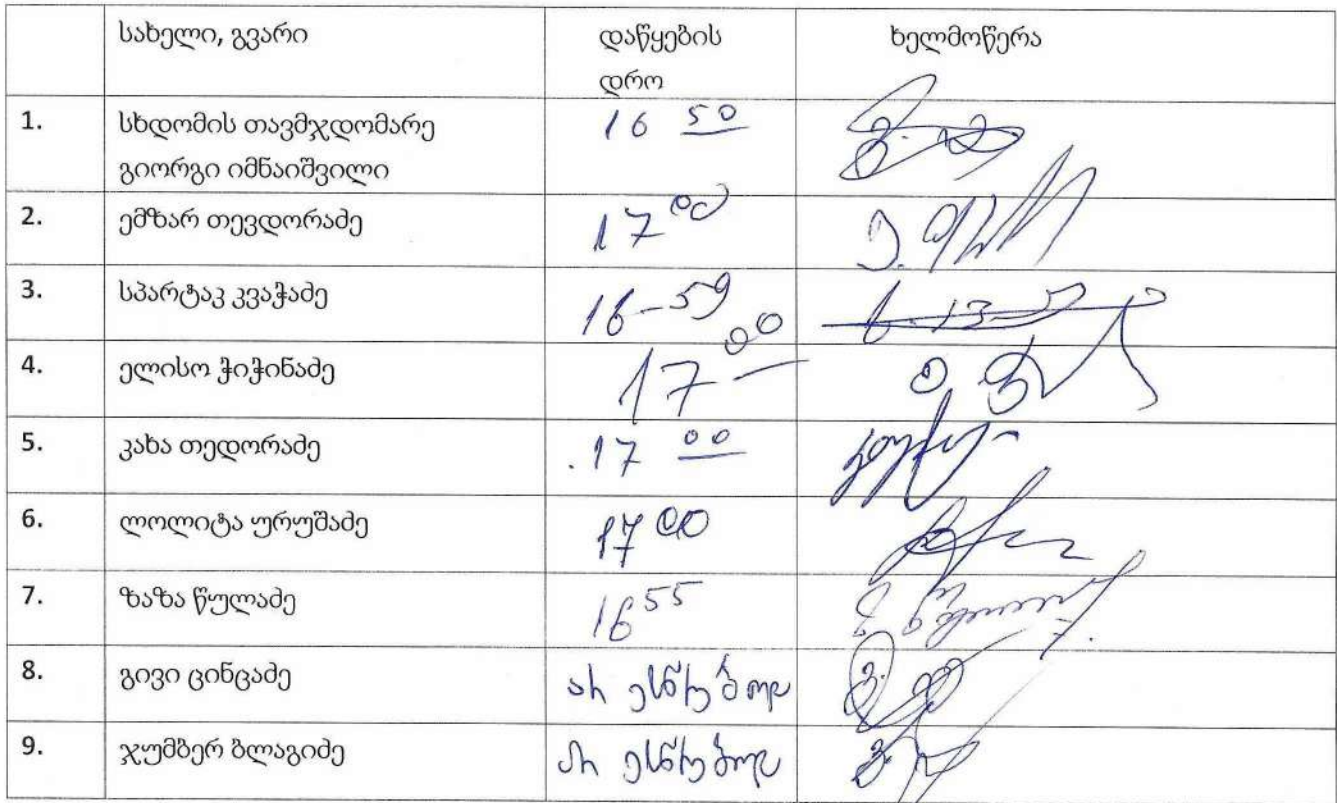 სახელი, გვარი დაწყების ხელმოწერა
დრო
1. სხდომის თავმჯდომარე 16 50
გიორგი იმნაიშვილი
2. ემზარ თევდორაძე 17 00
3. სპარტაკ კვაჭაძე 16-59
4. ელისო ჭიჭინაძე 17 00
5. კახა თედორაძე 17 00
6. ლოლიტა ურუშაძე 17 00
7. ზაზა წულაძე 16 55
8. გივი ცინცაძე არ ესწრებოდა
9. ჯუმბერ ბლაგიძე არ ესწრებოდა